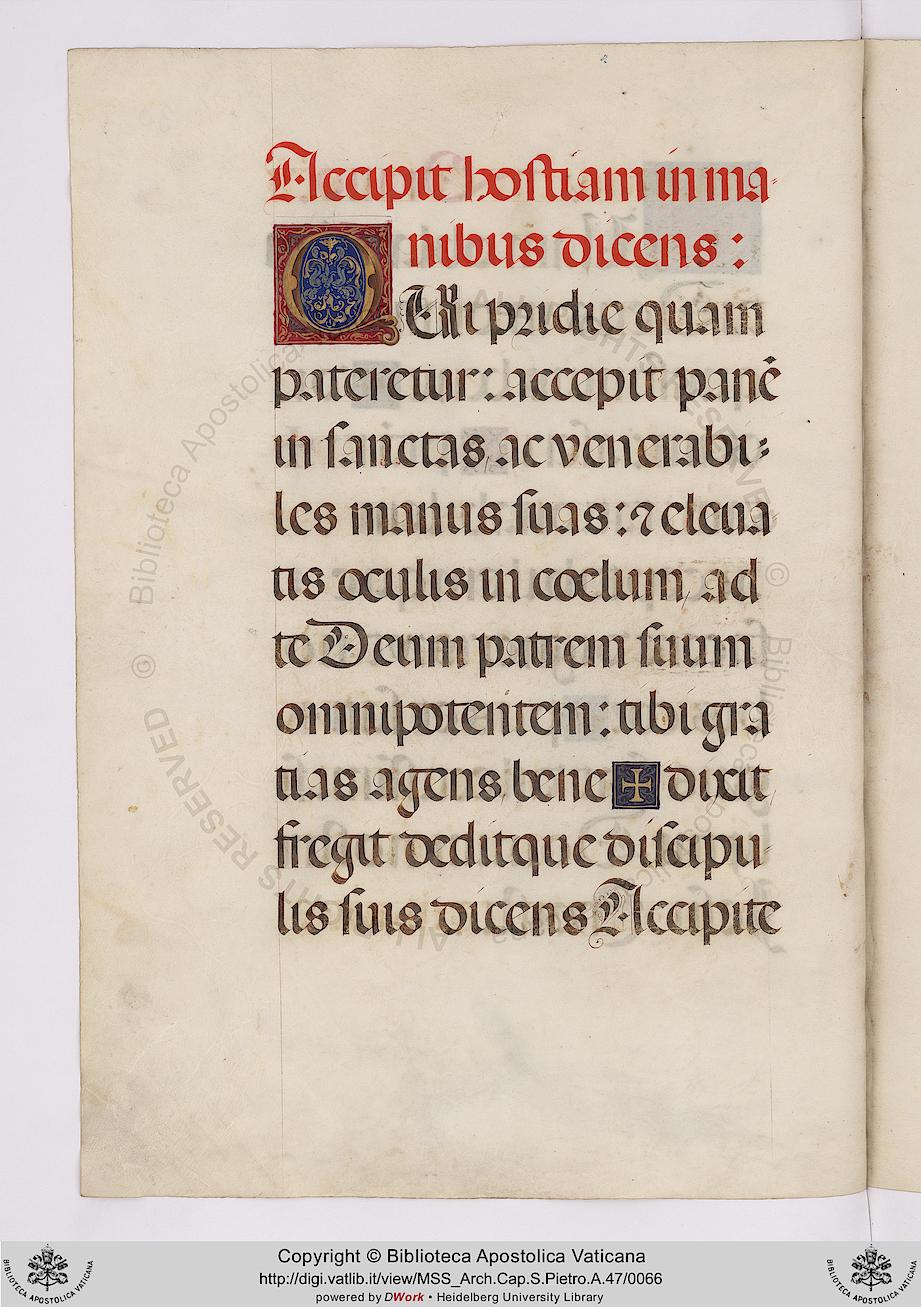 Accipit hostiam in ma-
nibus dicens:
QUi pridie quam
pateretur: accepit panē
in sanctas ac venerabi-
les manus suas: ⁊ eleua
tis oculis in coelum ad
te Deum patrem suum
omnipotentem: tibi gra
tias agens, bene ✠ dixit
fregit deditque discipu-
lis suis dicens Accipite
© Biblioteca Apostolica
ALL RIGHTS RESERVED
Copyright © Biblioteca Apostolica Vaticana
http://digi.vatlib.it/view/MSS_Arch.Cap.S.Pietro.A.47/0066
powered by DWork • Heidelberg University Library
BIBLIOTECA APOSTOLICA VATICANA
BIBLIOTECA APOSTOLICA VATICANA